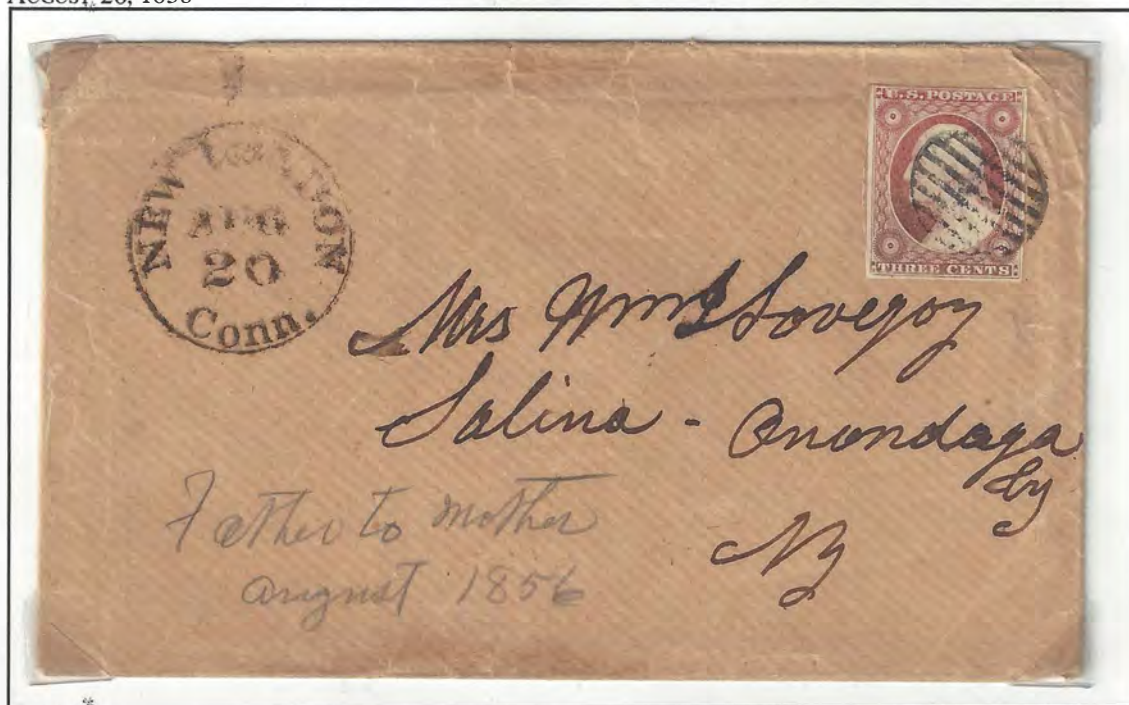 AUGUST 20, 1856
NEW LONDON
AUG
20
Conn.
U.S. POSTAGE
THREE CENTS
Mrs Wm Lovejoy
Salina - Onondaga
Cy
NY
Father to Mother
August 1856